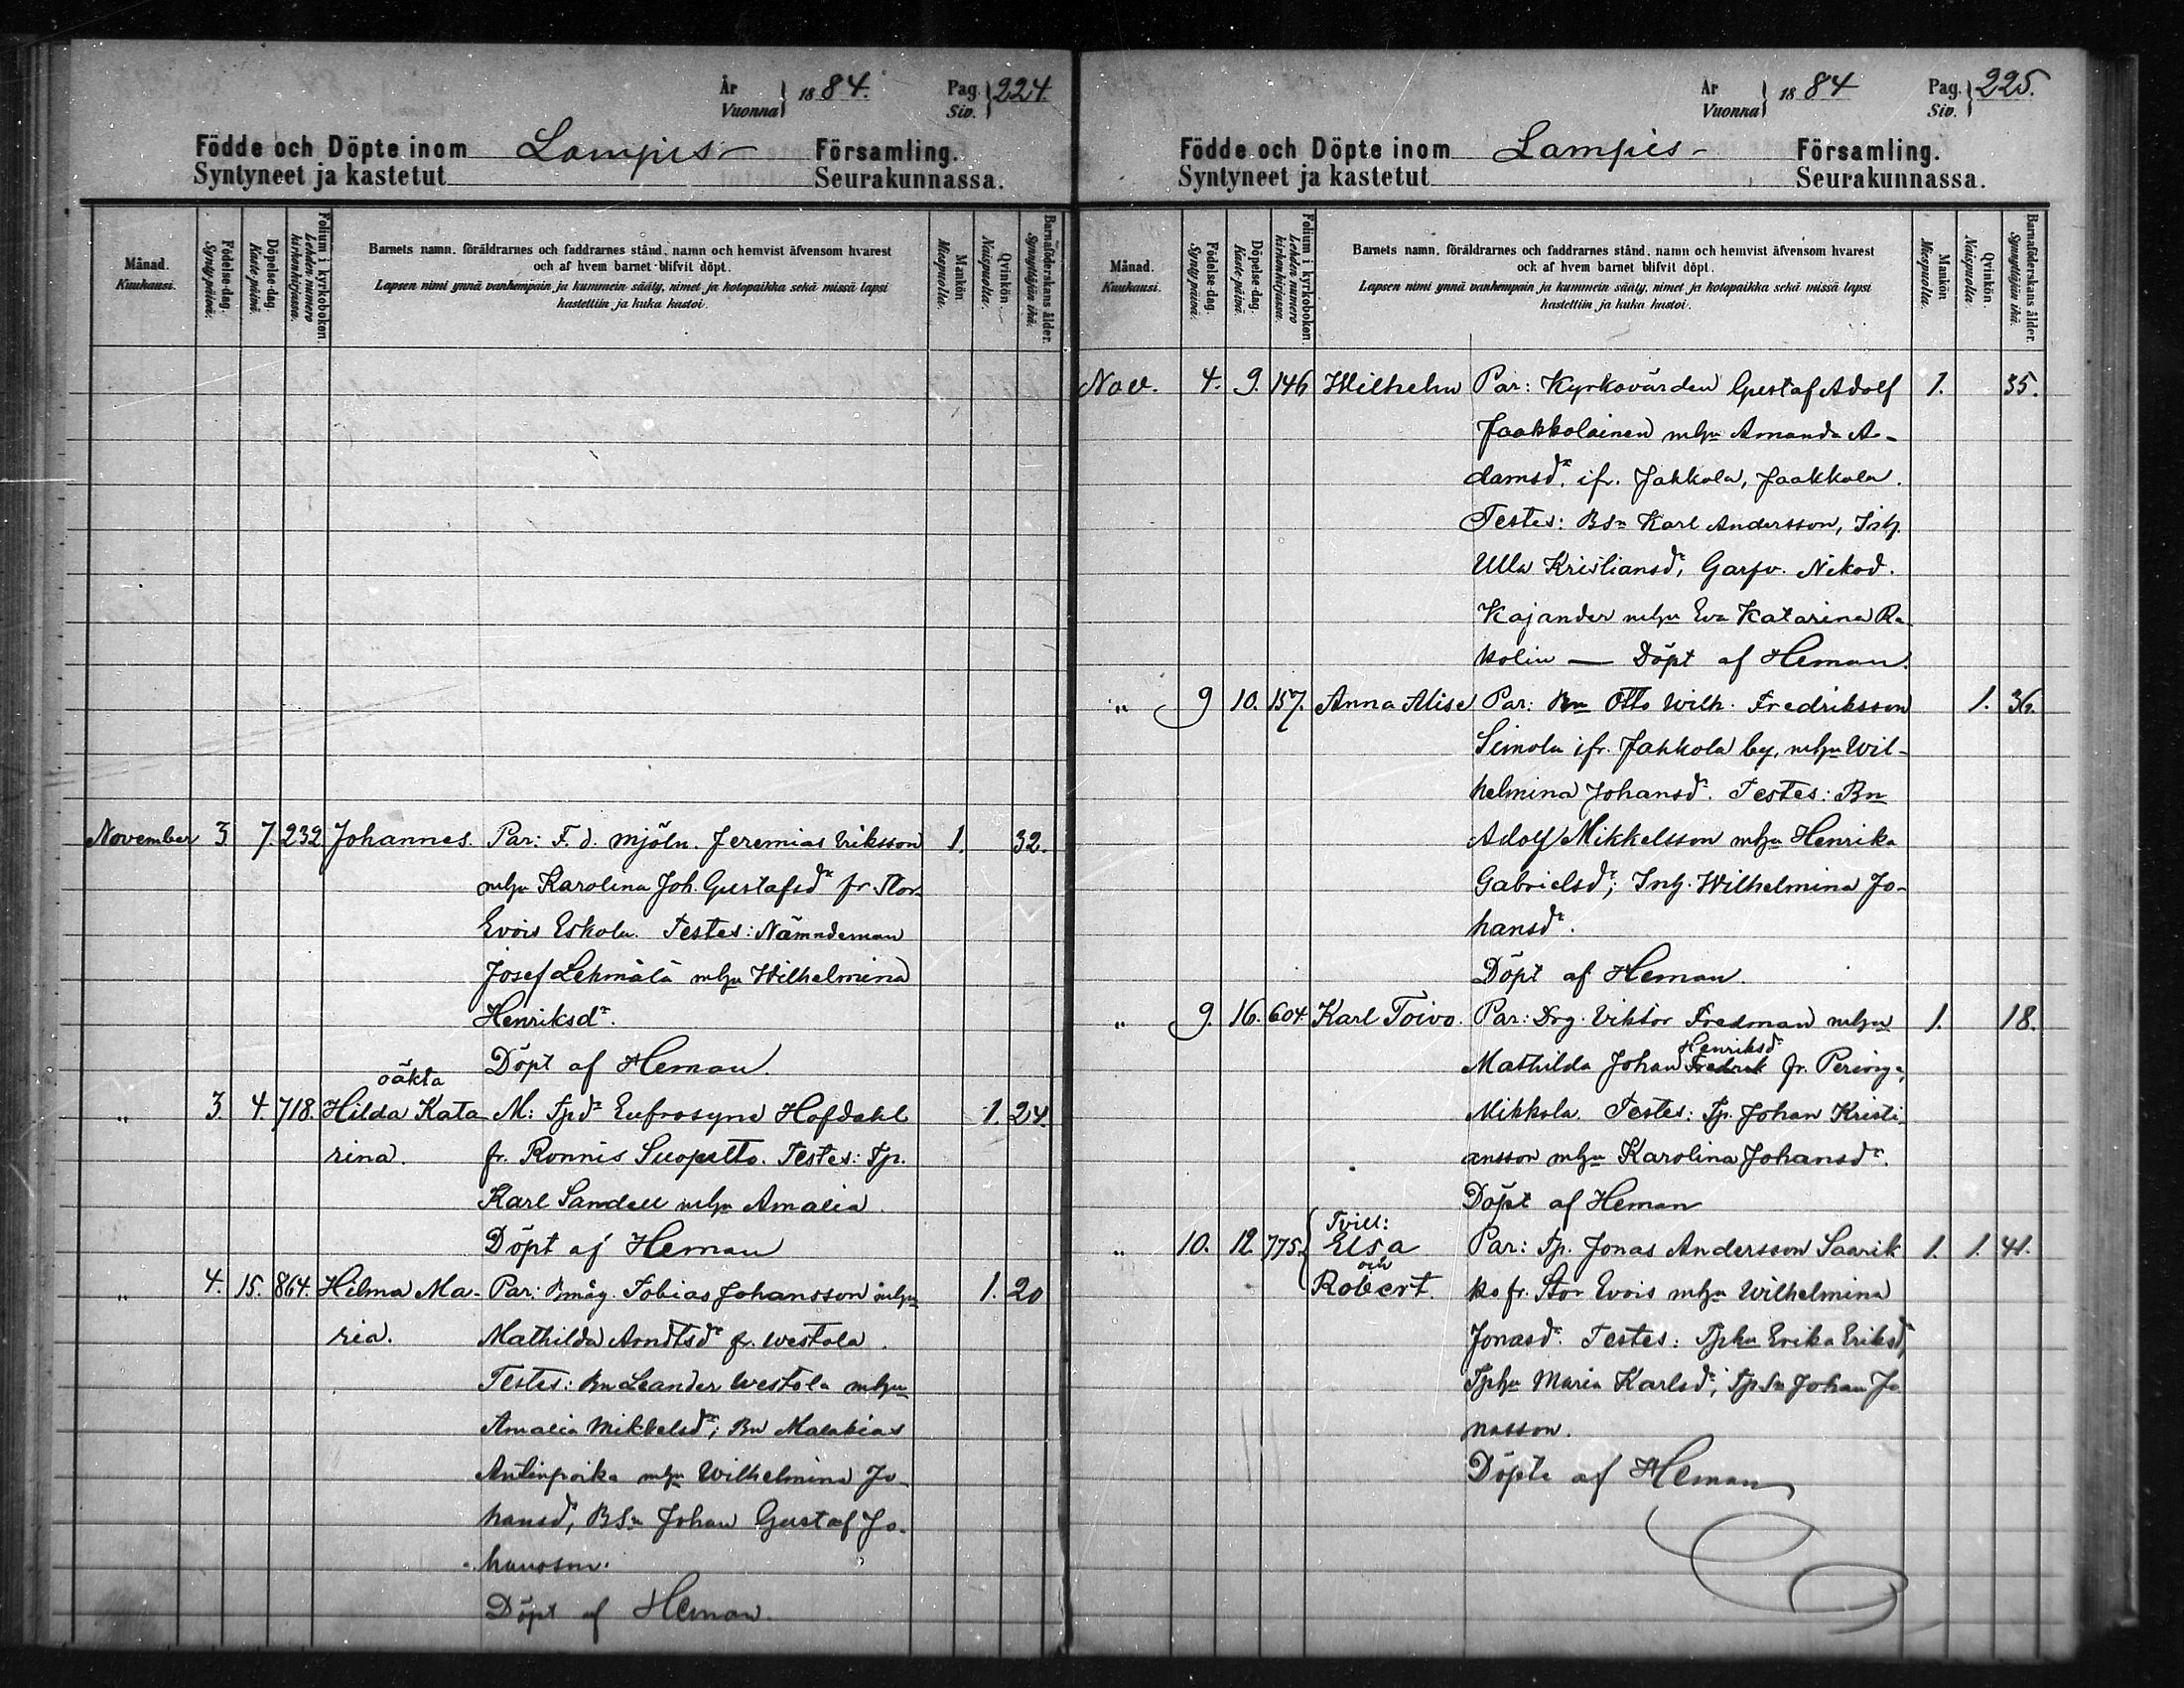 År Vuonna } 1884. Pag. Siv. } 224.
Födde och Döpte inom Lampis Församling.
Syntyneet ja kastetut Seurakunnassa.
Månad. Kuukausi.
Födelse-dag. Synty-päivä.
Döpelse-dag. Kaste-päivä.
Folium i kyrkobokon. Lehden numero kirkonkirjassa.
Barnets namn, föräldrarnes och faddrarnes stånd, namn och hemvist äfvensom hvarest
och af hvem barnet blifvit döpt.
Lapsen nimi ynnä vanhempain ja kummein sääty, nimet ja kotopaikka sekä missä lapsi
kastettiin ja kuka kastoi.
Mankön Miespuolta.
Qvinkön Naispuolta.
Barnaföderskans ålder. Synnyttäjän ikä.
November 3 7. 232 Johannes. Par: F. d. mjöln. Jeremias Eriksson 1. 32.
mhu Karolina Joh. Gustafsdr fr Stor
Evois Eskola. Testes: Nämndeman
Josef Lehmälä mhu Wilhelmina
Henriksdr.
Döpt af Heman.
oäkta
„ 3 4. 718. Hilda Kata M: Tpdr Eufrosyne Hofdahl 1. 24.
rina. fr. Ronnis Suopelto. Testes: Tp.
Karl Sandell mhu Amalia.
Döpt af Heman
„ 4. 15. 864. Hilma Ma- Par: Bmåg. Tobias Johansson mhu 1. 20
ria. Mathilda Arndtsdr fr. Westola.
Testes: Bn Leander Westola mhu
Amalia Mikkelsdr; Bn Malakias
Antinpoika mhu Wilhelmina Jo
hansdr, BSn Johan Gustaf Jo-
hansson.
Döpt af Heman.
År Vuonna } 1884 Pag. Siv. } 225.
Födde och Döpte inom Lampis- Församling.
Syntyneet ja kastetut Seurakunnassa.
Månad. Kuukausi.
Födelse-dag. Synty-päivä.
Döpelse-dag. Kaste-päivä.
Folium i kyrkobokon. Lehden numero kirkonkirjassa.
Barnets namn, föräldrarnes och faddrarnes stånd, namn och hemvist äfvensom hvarest
och af hvem barnet blifvit döpt.
Lapsen nimi ynnä vanhempain ja kummein sääty, nimet ja kotopaikka sekä missä lapsi
kastettiin ja kuka kastoi.
Mankön Miespuolta.
Qvinkön Naispuolta.
Barnaföderskans ålder. Synnyttäjän ikä.
Nov. 4. 9. 146 Wilhelm Par: Kyrkovärden Gustaf Adolf 1. 35.
Jaakkolainen mhu Amanda A-
damsdr. ifr. Jahkola, Jaakkola.
Testes: BSn Karl Andersson, Inh.
Ulla Kristiansdr, Garfv. Nikod.
Kajander mhu Eva Katarina Ra
kolin — Döpt af Heman.
„ 9 10. 157. Anna Alise Par: Bn Otto Wilh. Fredriksson 1. 36.
Simola ifr. Jahkola by, mhu Wil-
helmina Johansdr. Testes: Bn
Adolf Mikkelsson mhu Henrika
Gabrielsdr; Inh. Wilhelmina Jo-
hansdr.
Döpt af Heman.
„ 9. 16. 604. Karl Toivo. Par: Drg. Viktor Fredman mhu 1. 18.
Henriksdr
Mathilda Johan Fredrik fr. Pering-,
Mikkola. Testes: Tp. Johan Kristi
ansson mhu Karolina Johansdr.
Döpt af Heman
Tvill:
„ 10. 12 775. Elsa Par: Tp. Jonas Andersson Saarik 1. 1. 41.
och
Robert. ko fr. Stor Evois mhu Wilhelmina
Jonasdr. Testes: Tphu Erika Eriksdr,
Tphu Maria Karlsdr; TpSn Johan Jo
nasson.
Döpte af Heman